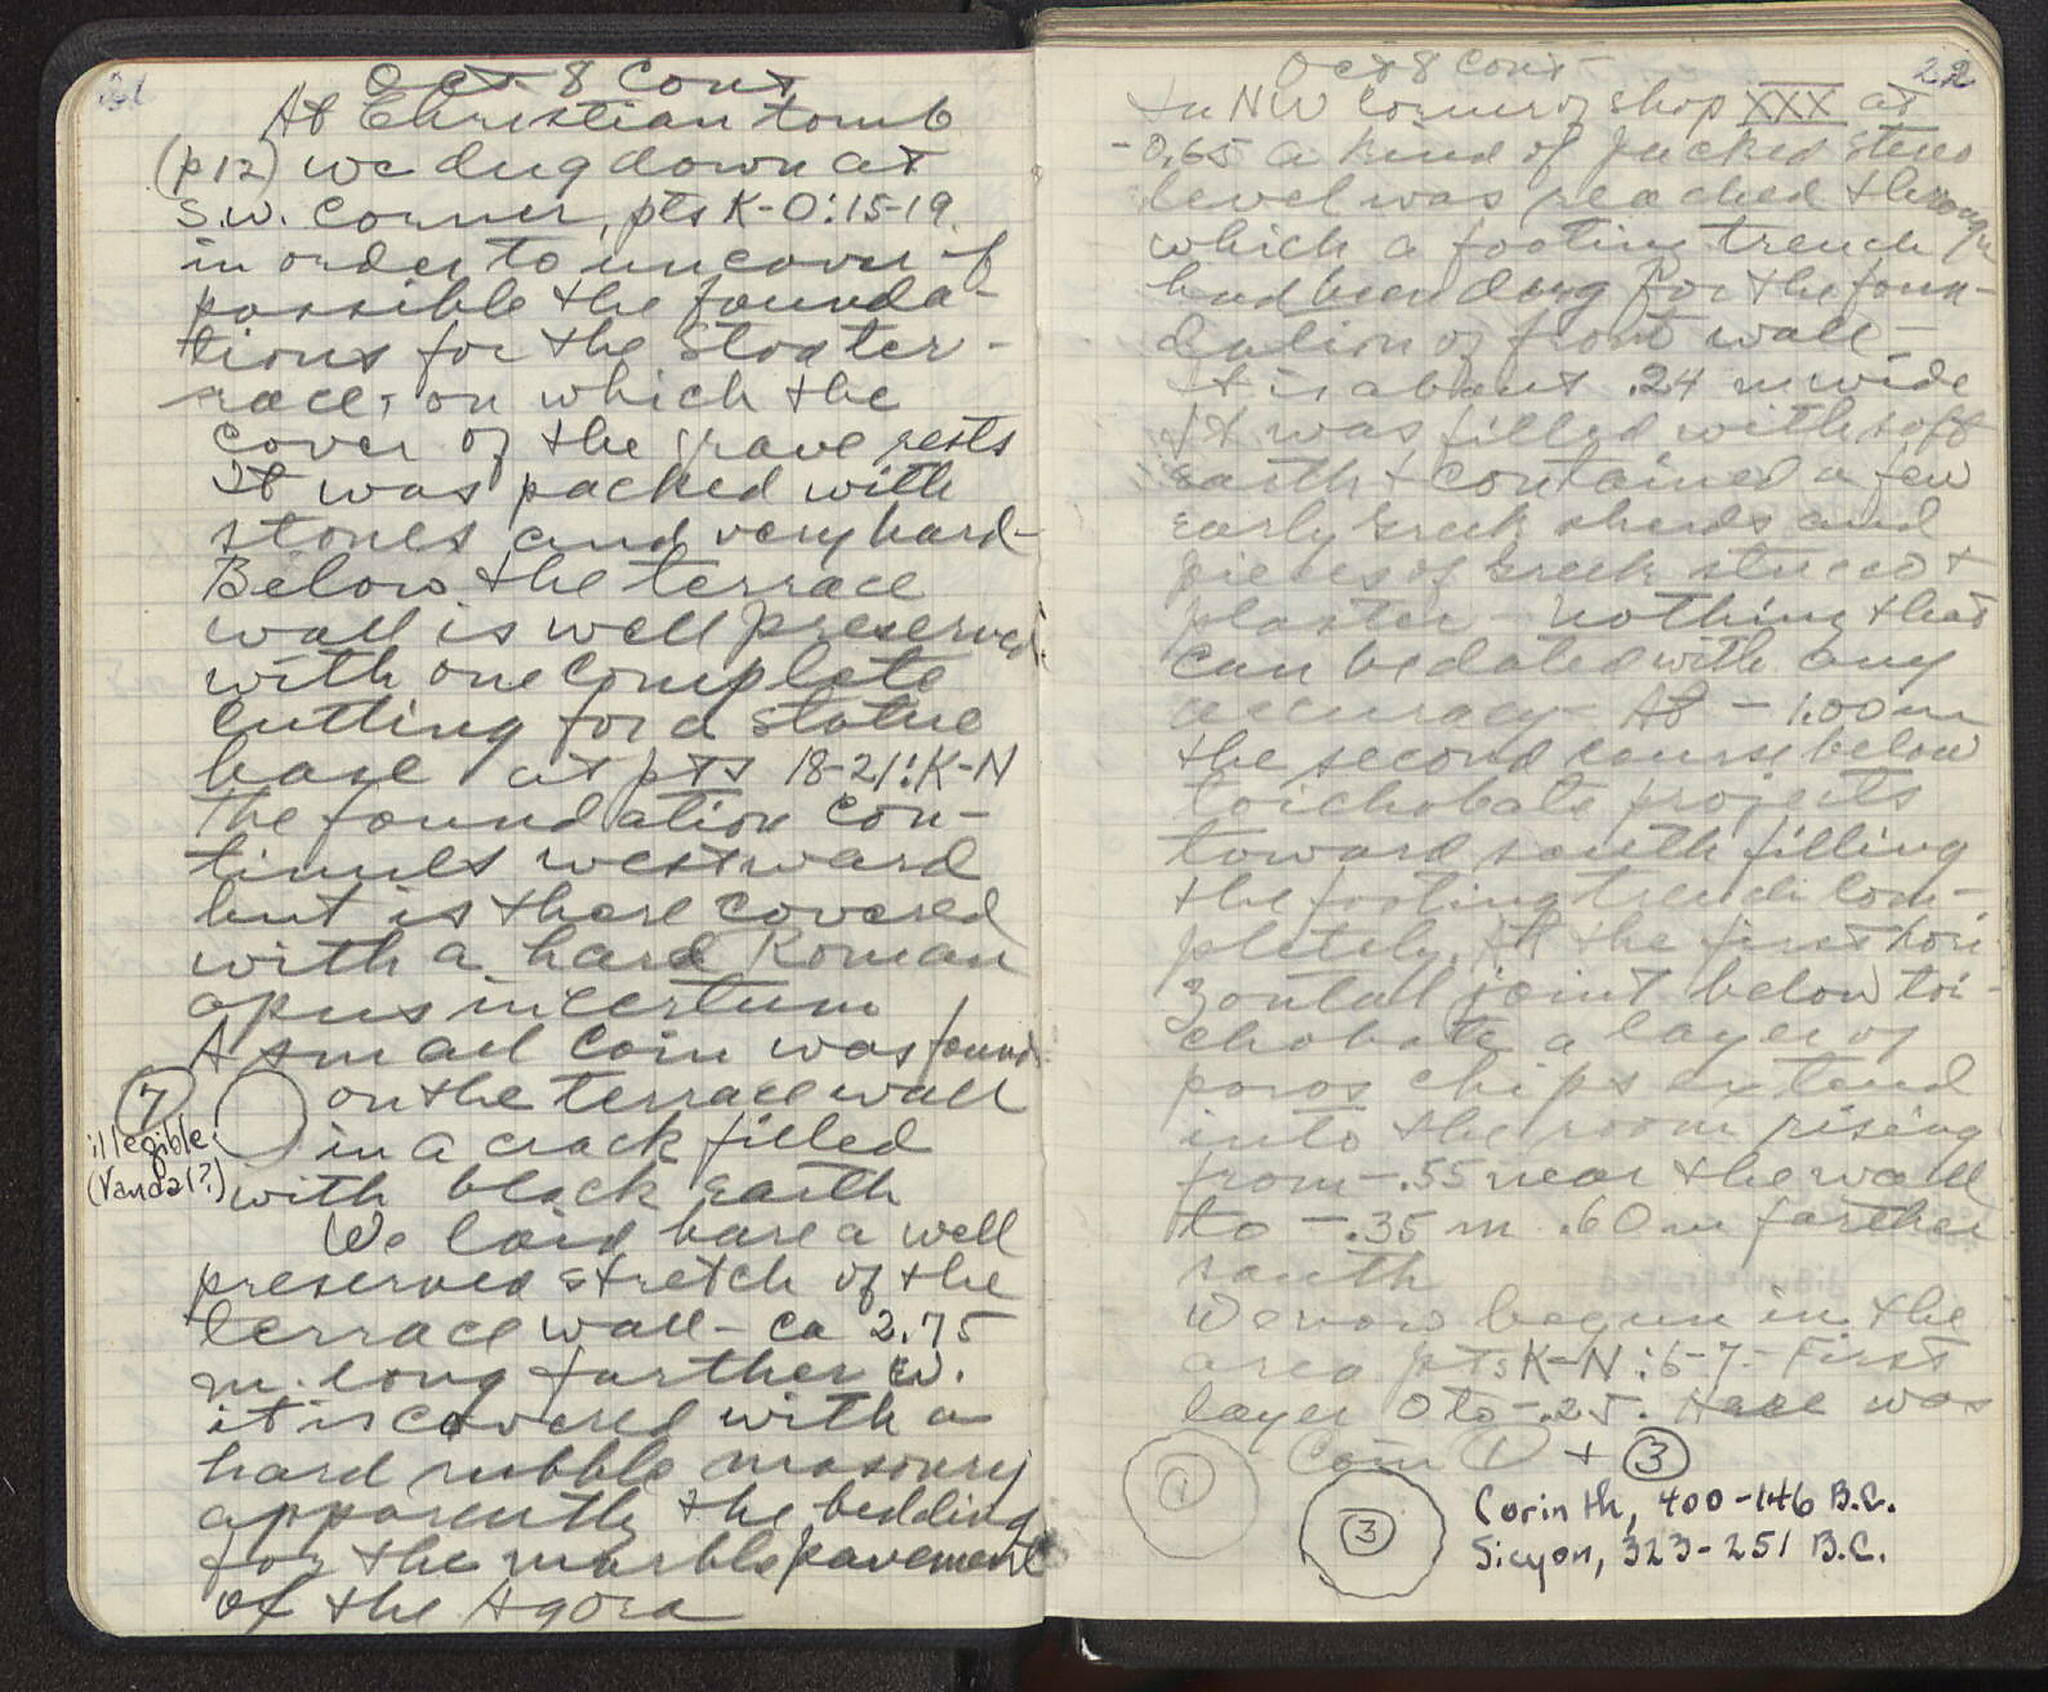 21
Oct 8 Cont
At Christian tomb
(p 12) we dug down at
S.W. Corner, pts K-O:15-19
in order to uncover if
possible the founda-
tions for the Stoa ter-
race, on which the
cover of the grave rests
It was packed with
stones and very hard-
Below the terrace
wall is well preserved
with one complete
cutting for a statue
base at pts 18-21:K-N
The foundation con-
tinues westward
but is there covered
with a hard Roman
opus incertum
A small coin was found
7 on the terrace wall
illegible in a crack filled
(Vandal?) with black earth
We laid bare a well
preserved stretch of the
terrace wall - ca 2.75
m. long further W.
it is covered with a
hard rubble masonry
apparently the bedding
for the marble pavement
of the Agora
22
Oct 8 Cont
In NW Corner of shop XXX at
-0.65 a kind of packed stereo
level was reached through
which a footing trench
had been dug for the foun-
dation of front wall -
It is about .24 m wide
It was filled with soft
earth + contained a few
early Greek sherds and
pieces of Greek stucco +
plaster - nothing that
can be dated with any
accuracy - At - 1.00 m
the second course below
toichobate projects
toward south filling
the footing trench com-
pletely. At the first hori
zontall joint below toi-
chobate a layer of
poros chips extend
into the room rising
from -.55 near the wall
to -.35 m .60 m farther
south
We now begun in the
area pts K-N:6-7- First
layer 0 to -.25. Here was
Coin 1 + 3
1
3 Corinth, 400-146 B.C.
Sicyon, 323-251 B.C.